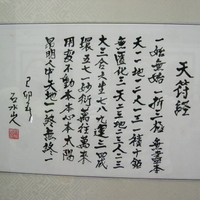 天符經
一始無始一析三極無盡本
天一一地一二人一三一積十鉅
無匱化三天二三地二三人二三
大三合六生七八九運三四成
環五七一妙衍萬往萬來
用變不動本本心本太陽
昂明人中天地一一終無終一
己卯